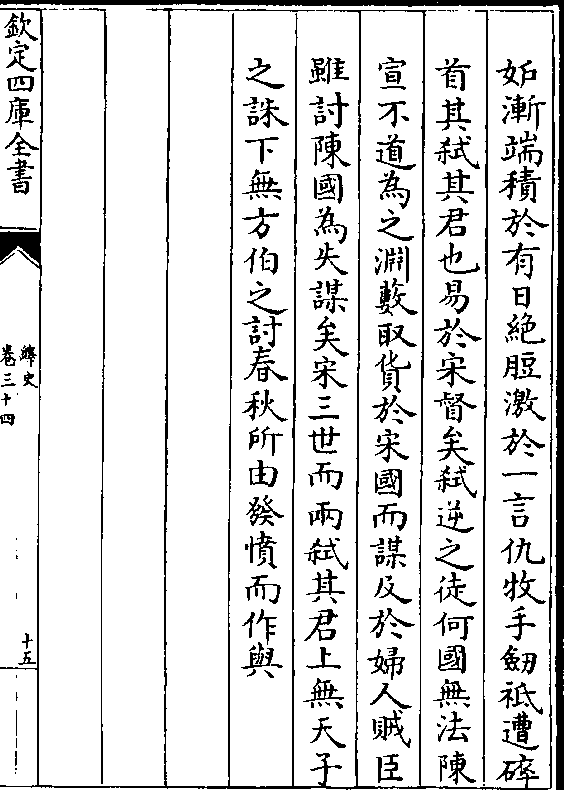 妬漸端積於有日絶脰激於一言仇牧手劒祗遭碎
首其弑其君也易於宋督矣弑逆之徒何國無法陳
宣不道為之淵藪取貨於宋國而謀及於婦人賊臣
雖討陳國為失謀矣宋三世而兩弑其君上無天子
之誅下無方伯之討春秋所由發憤而作與
欽定四庫全書
繹史
卷三十四
十五